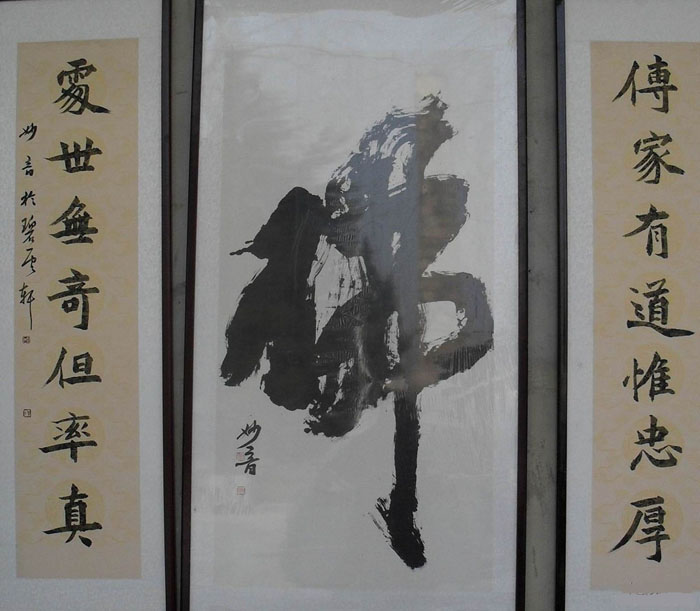 傳家有道惟忠厚
佛
妙音
處世無奇但率真
妙音於碧雲軒